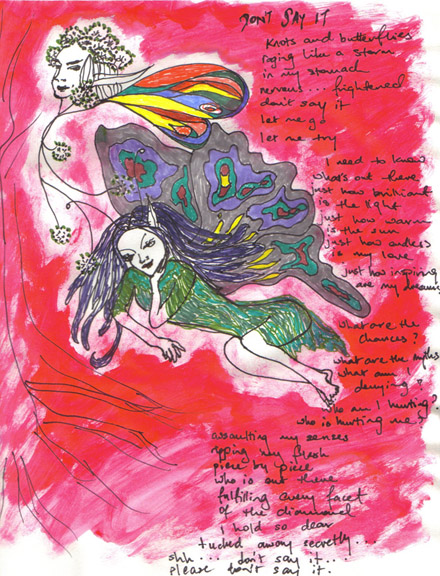 DON'T SAY IT
Knots and butterflies
raging like a storm
in my stomach
nervous... frightened
don't say it
let me go
let me try
I need to know
what's out there
just how brilliant
is the light
just how warm
is the sun
just how endless
is my love
just how inspiring
are my dreams
what are the
chances?
what are the myths
what am I
denying?
who am I hurting?
who is hurting me?
assaulting my senses
ripping my flesh
piece by piece
who is out there
fulfilling every facet
of the diamond
I hold so dear
tucked away secretly...
shh... don't say it...
please don't say it.